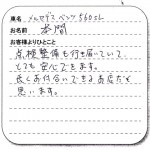 車名 メルセデスベンツ 560SL
お名前 本間
お客様よりひとこと
点検整備も行き届いていて、
とても安心できます。
長くお付合いできるお店だと
思います。